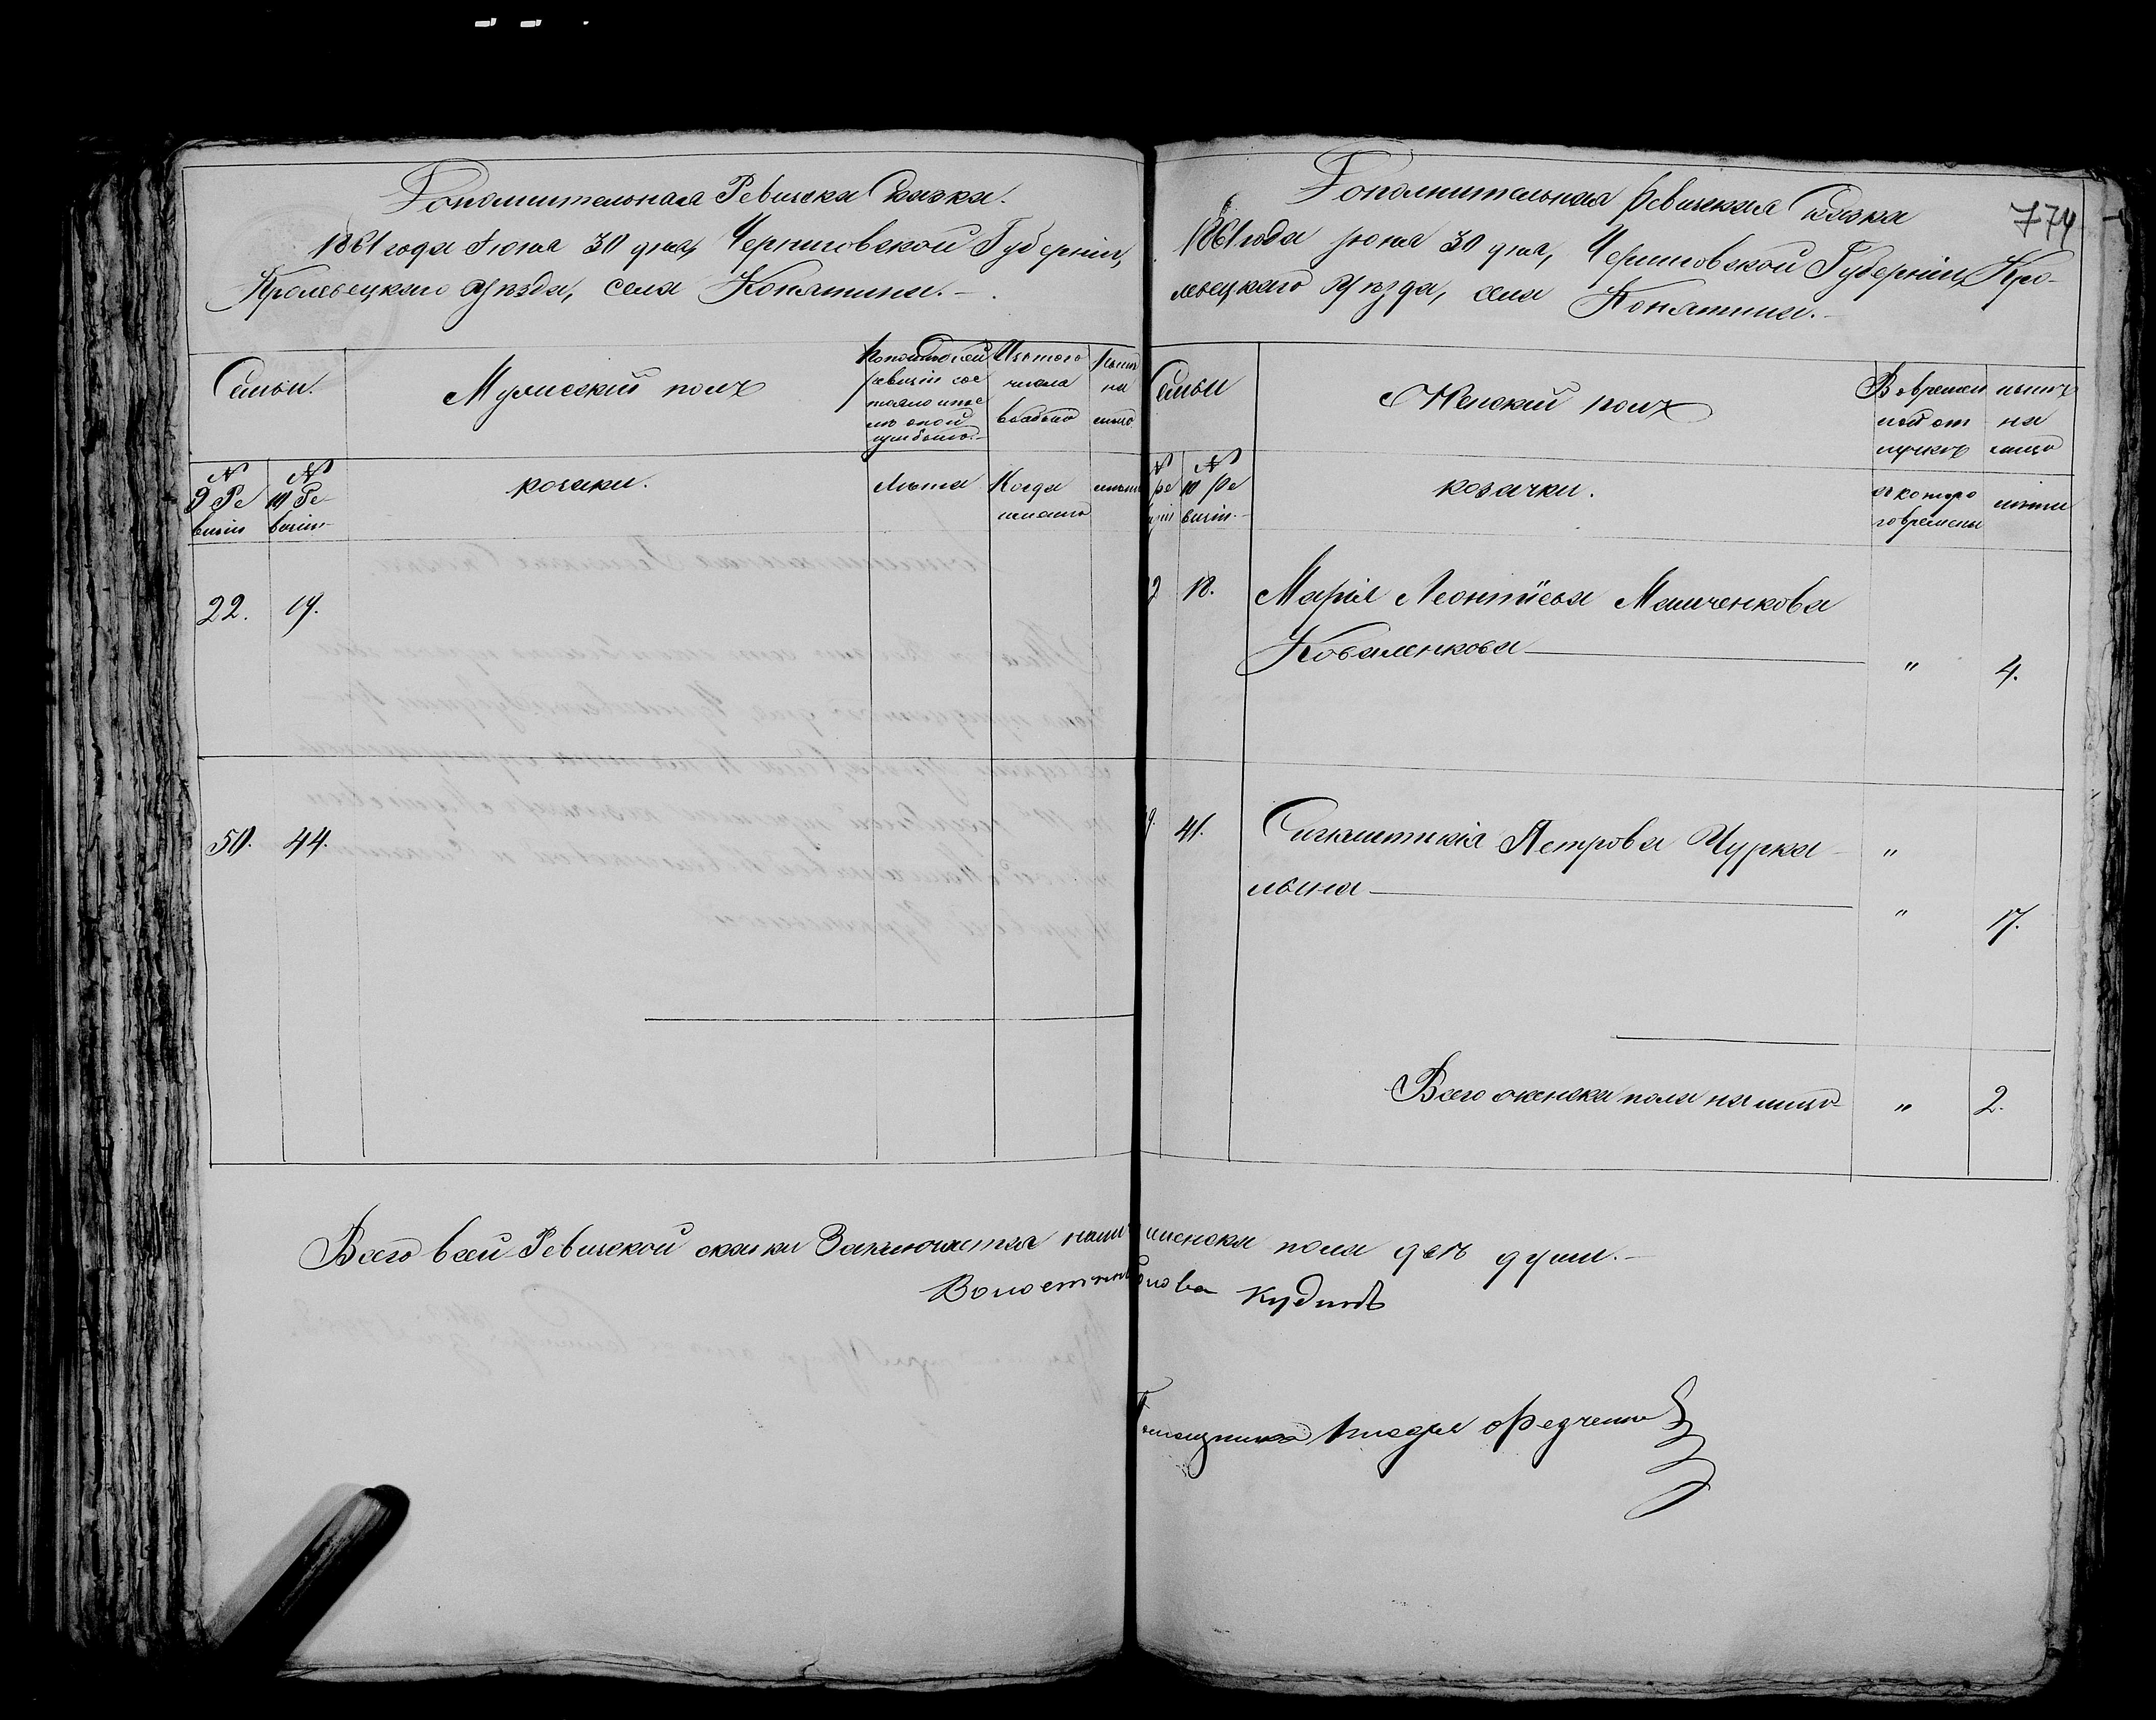 Дополнительная Ревиска Сказка.
1861 года Июня 30 дня, Черниговской Губерніи,
Кролевецкаго Уезда, села Конятина.
Семьи.
Мужеский полъ
По последней
ревизіи сос
тояло и после
оной
прибыло.
Изъ того
числа
выбыло
Ныне
на
лицо
№
9 Ре
визіи
№
10 Ре
визіи
козаки.
Лета
Когда
именно
лета
22.
19.
50.
44.
Дополнительная Ревизская Сказка
774
1861 года Июня 30 дня, Черниговской Губерніи, Кро-
левецкаго Уезда, села Конятина.
Семьи
Женский полъ
Вовремен
ной от
лучке
ныне
на
лицо
№
ре
№
10 Ре
визіи.
козачки.
съ которо
го времены
лета
18.
Марія Леонтіева Мамченкова
Коваленкова
"
4.
41.
Петрова Чурка
"
лына
"
17.
Всего женска пола налицо
"
2.
Всего в сей Ревизской сказки Заключается налицо женска пола две души.
Волостной Голова Кудинъ
Помощника Федченко